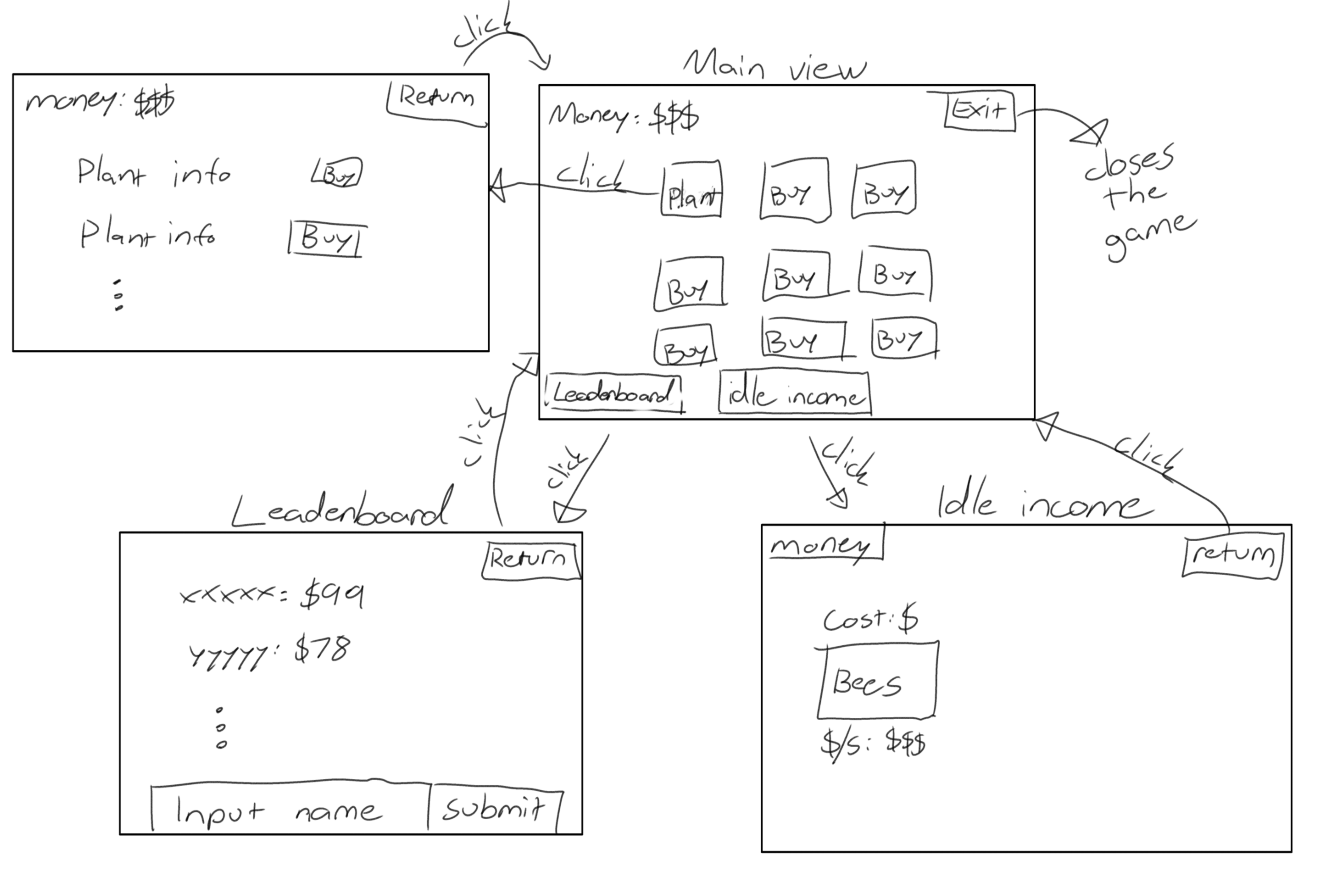 click
money: $$$
Return
Plant info
Buy
Plant info
Buy
Main view
Money: $$$
Exit
closes
the
game
click
Plant
Buy
Buy
Buy
Buy
Buy
Buy
Buy
Buy
Leaderboard
idle income
click
click
click
click
Leaderboard
Return
xxxxx: $99
yyyyy: $78
Input name
Submit
Idle income
money
return
Cost: $
Bees
$/s: $$$